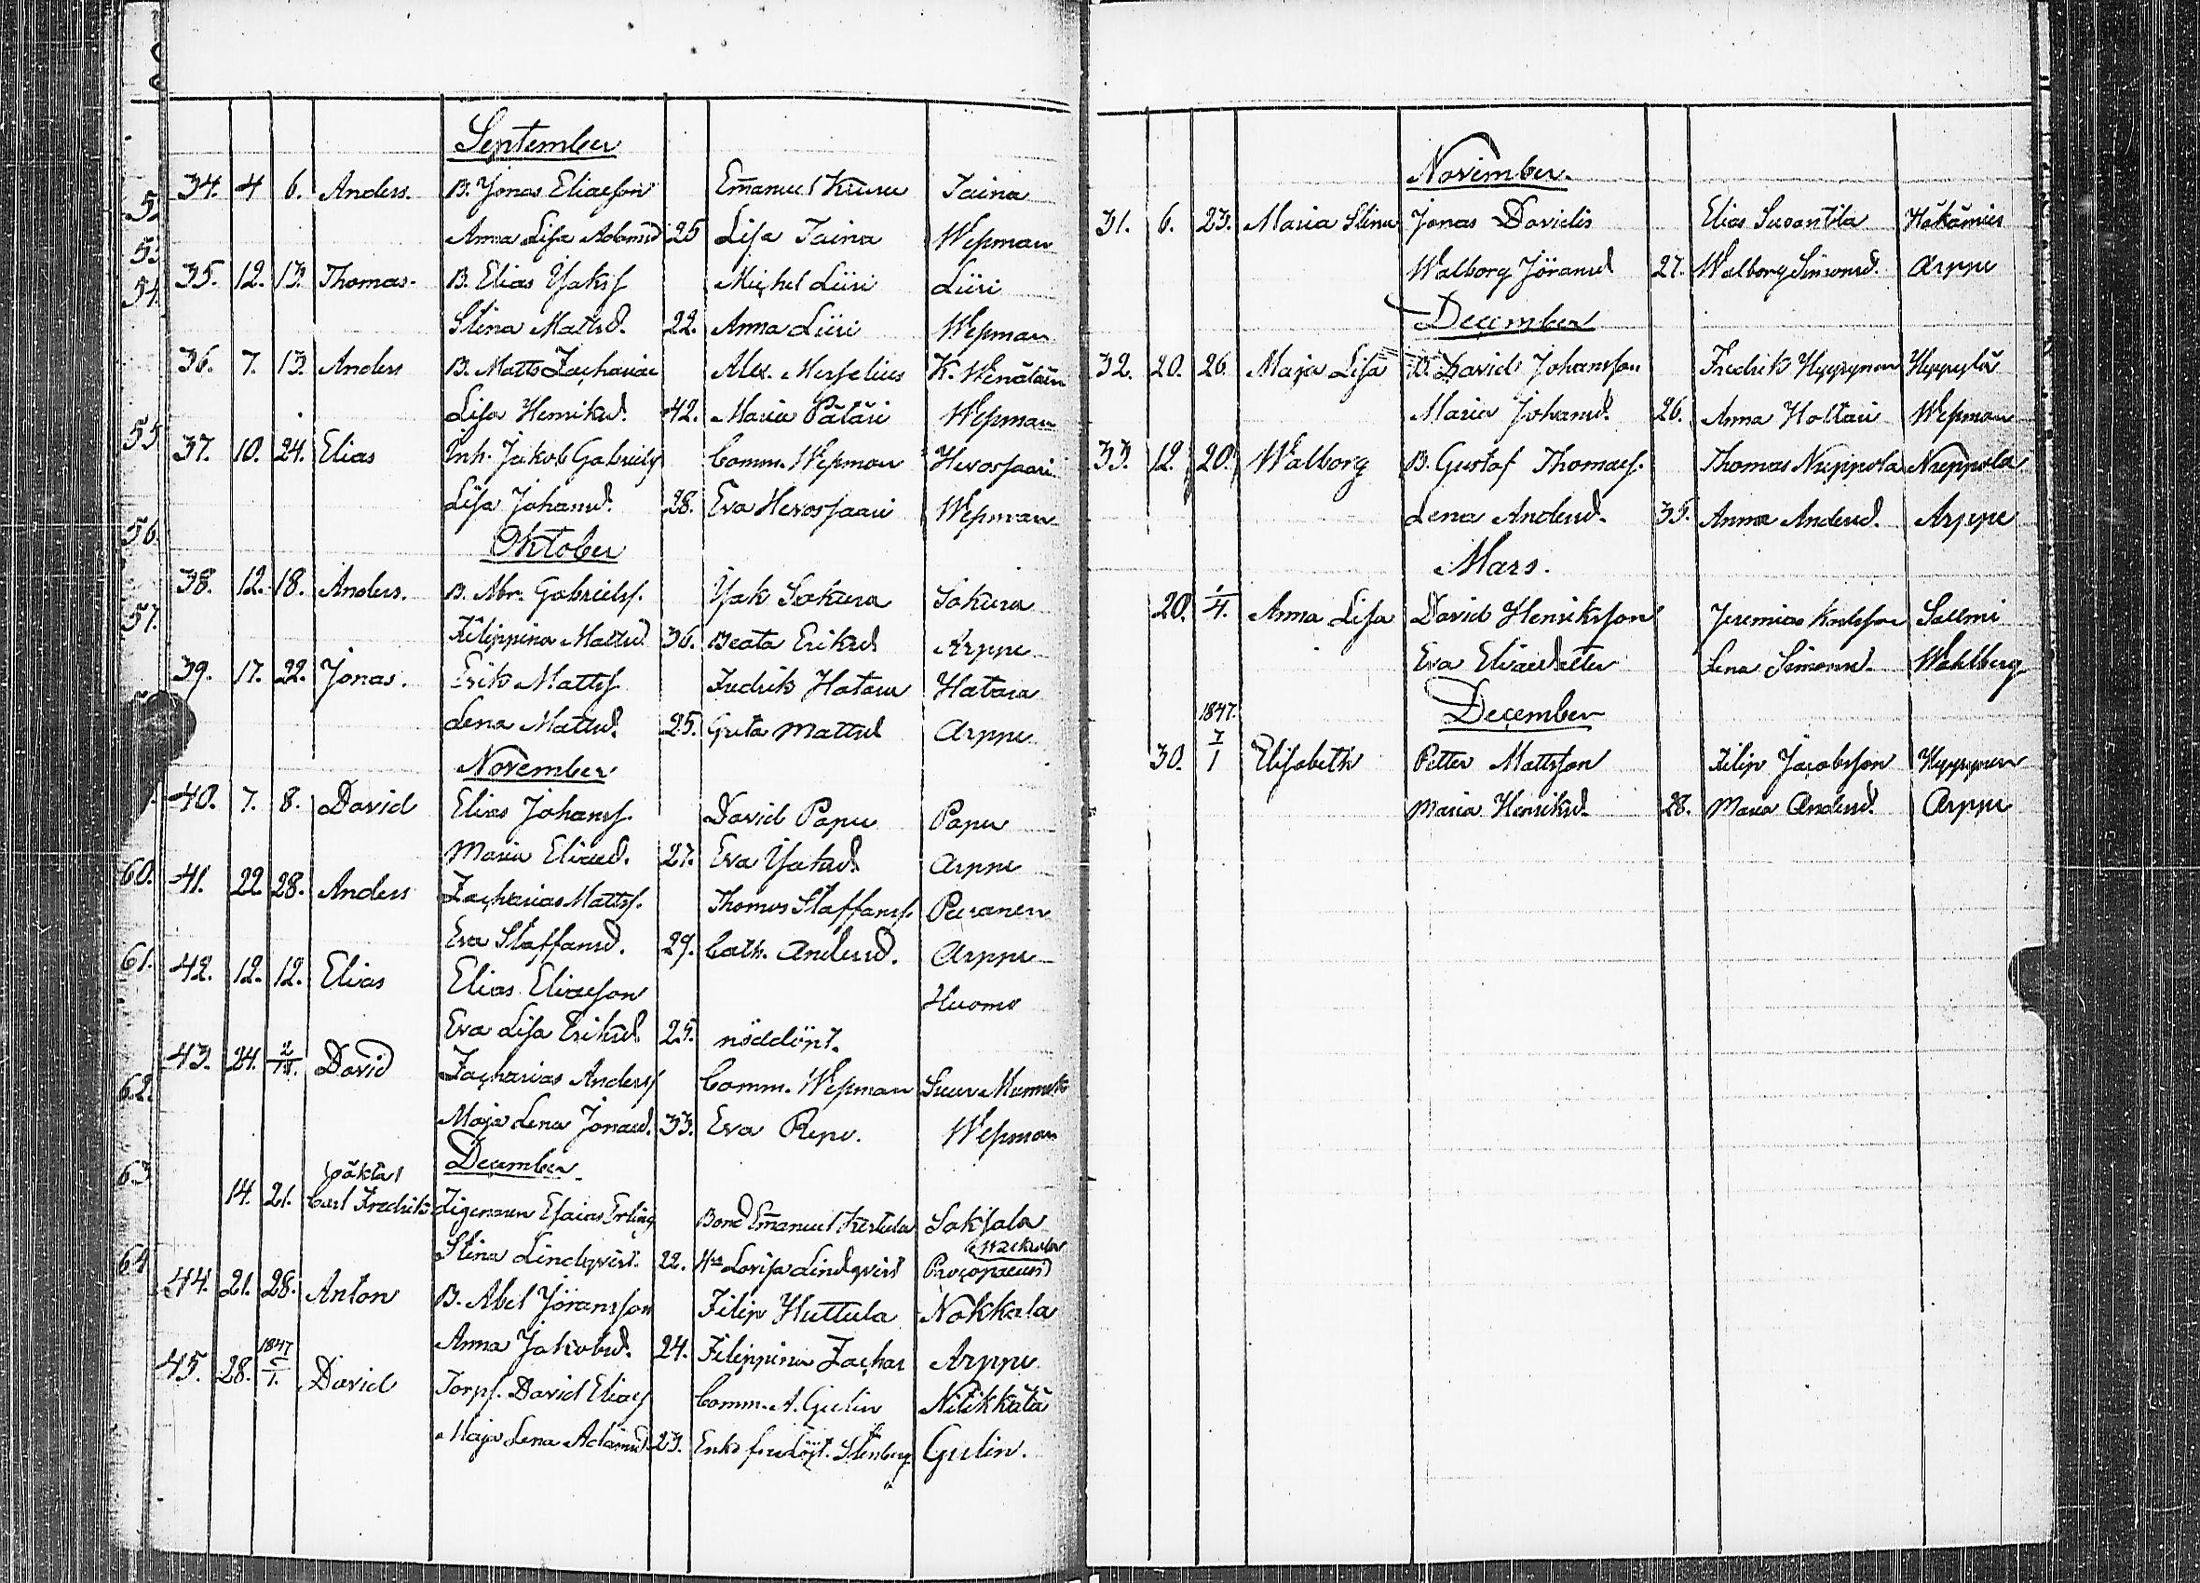 September
34. 4 6. Anders. B. Jonas Eliaeson Emanuel Kuru Taina
Anna Lisa Adamsd 25 Lisa Taina Wepman
35. 12. 13. Thomas. B. Elias Isaks Michel Liiri Liiri
Stina Mattsd. 22. Anna Liiri Wepman
36. 7. 13. Anders B. Matts Zachariae Alex. K. Wenäläin
Lisa Henriksd. 42. Maria Pätäri Wepman
37. 10. 24. Elias Inh. Jakob Gabriels Comm. Wepman Hevossaari
Lisa Johansd. 28. Eva Hevossaari Wepman
Oktober
38. 12. 18. Anders. B. Abr. Gabriels. Isak Sokura Sokura
Filippina Mattsd 36. Beata Eriksd Arppe
39. 17. 22. Jonas. Erik Matts Fredrik Hatara Hatara
Lena Mattsd. 25. Greta Mattsd Arppe
November
40. 7. 8. David Elias Johans. David Papu Papu
Maria Eliaed. 27. Eva Isaksd. Arppe
41. 22. 28. Anders Zacharias Matts. Thomas Staffans. Puranen
Eva Staffansd. 29. Cath. Andersd. Arppe
42. 12. 12. Elias Elias Eliaeson Huomo
Eva Lisa Eriksd 25. nöddöpt.
43. 24. David Zacharias Anders Comm. Wepman
Maja Lena Jonaed. 33. Eva Repo. Wepman
December
oäkta
14. 21. Carl Fredrik Zigenaren Esaias Erling Bond Emanuel Kertula Soksala
Stina Lindqvist. 22. Lovisa Lindqvist Procopaeus
44. 21. 28. Anton B. Abel Jöransson Filip Huttula Nokkala
Anna Jakobsd. 24. Filippina Zachar Arppe
45. 28. 1847 David Torps. David Elias Comm. A. Gulin Niükkälä
Maja Lena Adamsd. 23. Gulin.
52
53
54
55
56.
57.
60.
61.
62.
63
64
November.
31. 6. 23. Maria Stina Jonas Davidis Elias Susantila Hökämies
Walborg Jöransd 27. Walborg Simonsd. Arppe
December
32. 20. 26. Maja Lisa B. David Johansson Fredrik Hyyrynen Hyyrylä
Maria Johansd. 26. Anna Holtari Wepman
33. 12. 20. Walborg B. Gustaf Thomaes. Thomas Nuppola Nuppola
Lena Andersd. 35. Anna Andersd. Arppe
Mars.
20. 1/4. Anna Lisa David Henriksson Jeremias Karlsson Salmi
Eva Eliaedotter Lena Simonsd. Wahlberg
December
1847.
30. 7/1 Elisabeth Petter Mattsson Filip Jacobsson Hyyrynen
Maria Henriksd. 28. Maria Andersd. Arppe